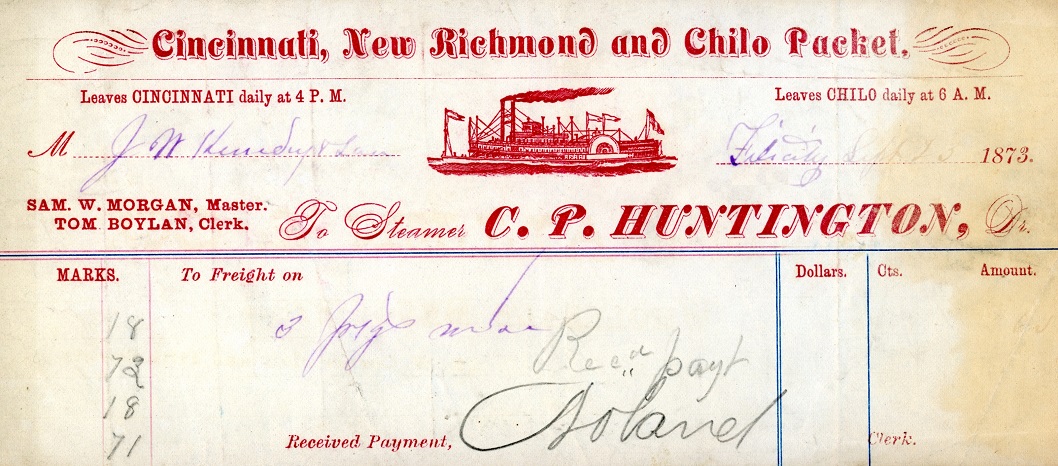 Cincinnati, New Richmond and Chilo Packet.
Leaves CINCINNATI daily at 4 P. M.
Leaves CHILO daily at 6 A. M.
M J W Kennedy & Son
Felicity 1873.
SAM. W. MORGAN, Master.
TOM BOYLAN, Clerk.
To Steamer C. P. HUNTINGTON, Dr.
MARKS. To Freight on Dollars. Cts. Amount.
18
3
72
Rec'd payt
18
71
Received Payment, Boland Clerk.